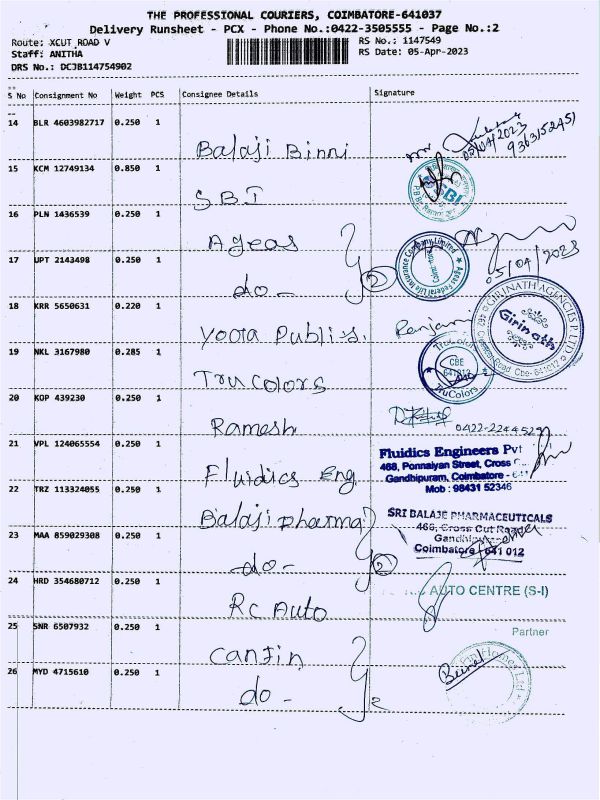 THE PROFESSIONAL COURIERS, COIMBATORE-641037
Delivery Runsheet - PCX - Phone No.:0422-3505555 - Page No.:2
Route: XCUT ROAD V RS No.: 1147549
Staff: ANITHA RS Date: 05-Apr-2023
DRS No.: DCJB114754902
S No Consignment No Weight PCS Consignee Details Signature
14 BLR 4603982717 0.250 1
Balaji Binni 05/04/2023 9363152451
15 KCM 12749134 0.850 1
SBI
SBI
16 PLN 1436539 0.250 1
Ageas
Ageas Federal Life Insurance Company Limited
17 UPT 2143498 0.250 1
do - 2 05/04/2023
18 KRR 5650631 0.220 1
Yoora Publis. Ranjani
GIRINATH AGENCIES P. LTD
Girinath
Cbe- 641012
19 NKL 3167980 0.285 1
TruColors
TruColors
CBE
641012
TruColors
20 KOP 439230 0.250 1
Ramesh 0422-2244529
21 VPL 124065554 0.250 1
Fluidics Eng
Fluidics Engineers Pvt
468, Ponnaiyan Street, Cross
Gandhipuram, Coimbatore -
Mob : 98431 52346
22 TRZ 113324055 0.250 1
Balaji pharma
SRI BALAJE PHARMACEUTICALS
466, Cross Cut
Coimbatore - 641 012
23 MAA 859029308 0.250 1
do - 2
24 HRD 354680712 0.250 1
RC Auto
AUTO CENTRE (S-I)
Partner
25 SNR 6507932 0.250 1
canfin
26 MYD 4715610 0.250 1
do - 2
Homes Ltd